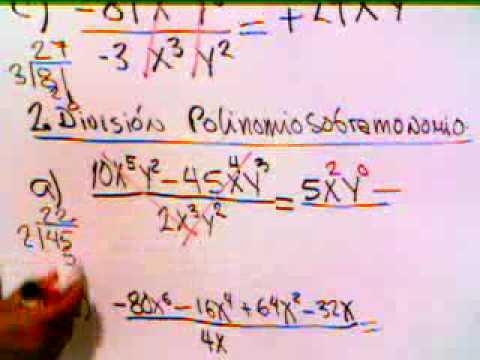 -81x
-3 x³ y² = +27xy
27
3|81
2. División Polinomio sobre monomio
a) 10x⁵y² - 45x⁴y³ = 5x²y⁰ -
2x³y²
22
2|45
5
-80x⁵ - 16x⁴ + 64x² - 32x =
4x